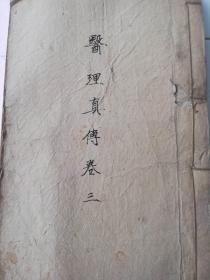 醫理真傳卷三